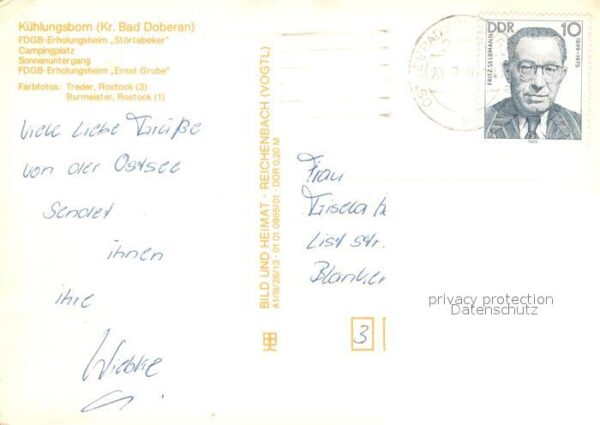 Kühlungsborn (Kr. Bad Doberan)
FDGB-Erholungsheim „Störtebeker"
Campingplatz
Sonnenuntergang
FDGB-Erholungsheim „Ernst Grube"
Farbfotos: Treder, Rostock (3)
Burmeister, Rostock (1)
Viele liebe Grüße
von der Ostsee
sendet
ihnen
ihre
Wiebke
BILD UND HEIMAT · REICHENBACH (VOGTL)
A1/III/26/13 · 01 01 0985/01 · DDR 0,20 M
DDR 10
FRITZ SELBMANN 1899-1975
Frau
Gisela
List str.
Blanken
3
privacy protection
Datenschutz